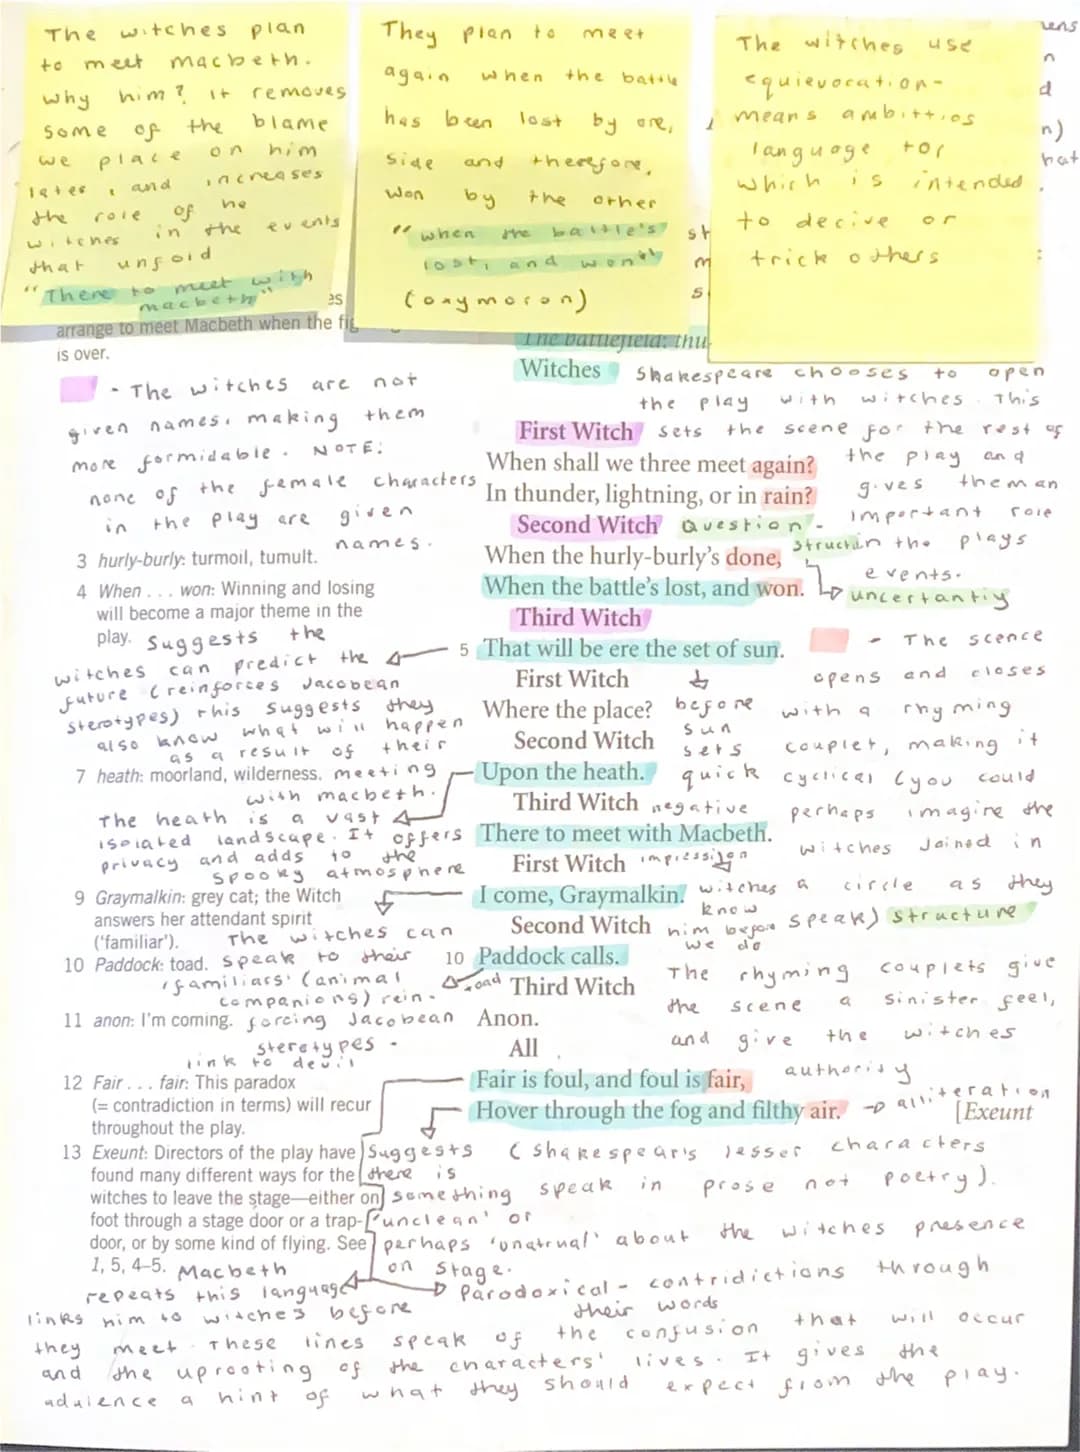 The witches plan
to meet macbeth.
why him? It removes
some of the blame
we place on him
later, and increases
the role of he
witches in the events
that unfold
"There to meet with
macbeth"
They plan to meet
again when the battle
has been lost by one,
side and therefore,
won by the other
"when the battle's
lost, and won"
(oxymoron)
The witches use
equievocation-
means ambittios
language for
which is intended
to decive or
trick others
ens
n
d
n)
hat
st
m
s
es
arrange to meet Macbeth when the fig
is over.
The battlefield: thu
Witches
Shakespeare chooses to open
the play with witches. This
sets the scene for the rest of
the play and
gives them an
important role
in the plays
events.
- The witches are not
given names, making them
more formidable. NOTE:
none of the female characters
in the play are given
names.
First Witch
When shall we three meet again?
In thunder, lightning, or in rain?
Second Witch
Question -
struct
uncertantiy
3 hurly-burly: turmoil, tumult.
When the hurly-burly's done,
4 When . . . won: Winning and losing
will become a major theme in the
play.
When the battle's lost, and won.
Third Witch
Suggests the
witches can predict the
future (reinforces Jacobean
sterotypes) this suggests they
also know what will happen
as a result of their
meeting
with macbeth.
5 That will be ere the set of sun.
before
sun
sets
- The scence
opens and closes
with a rhyming
couplet, making it
cyclical (you could
perhaps imagine the
witches joined in
a circle as they
speak) structure
First Witch
Where the place?
Second Witch
7 heath: moorland, wilderness.
Upon the heath.
The heath is a vast
isolated landscape. It offers
privacy and adds to the
spooky atmosphere
Third Witch
There to meet with Macbeth.
quick
negative
impression
witches
know
him before
we do
First Witch
9 Graymalkin: grey cat; the Witch
answers her attendant spirit
('familiar').
I come, Graymalkin.
Second Witch
10 Paddock: toad.
10 Paddock calls.
toad
The witches can
speak to their
'familiars' (animal
companions) rein-
forcing Jacobean
sterotypes.
link to devil
Third Witch
11 anon: I'm coming.
Anon.
All
The rhyming couplets give
the scene a sinister feel,
and give the witches
authority
12 Fair . . . fair: This paradox
(= contradiction in terms) will recur
throughout the play.
Fair is foul, and foul is fair,
Hover through the fog and filthy air.
alliteration
[Exeunt
13 Exeunt: Directors of the play have
found many different ways for the
witches to leave the stage—either on
foot through a stage door or a trap-
door, or by some kind of flying. See
1, 5, 4–5.
Suggests
there is
something
'unclean' or
perhaps 'unatrual' about the witches presence
on stage.
(Shakespear's lesser characters
speak in prose not poetry).
Parodoxical - contridictions through
their words
Macbeth
repeats this language
links him to witches before
they meet. These lines speak of the confusion that will occur
and the uprooting of the characters' lives. It gives the
aduience a hint of what they should expect from the play.